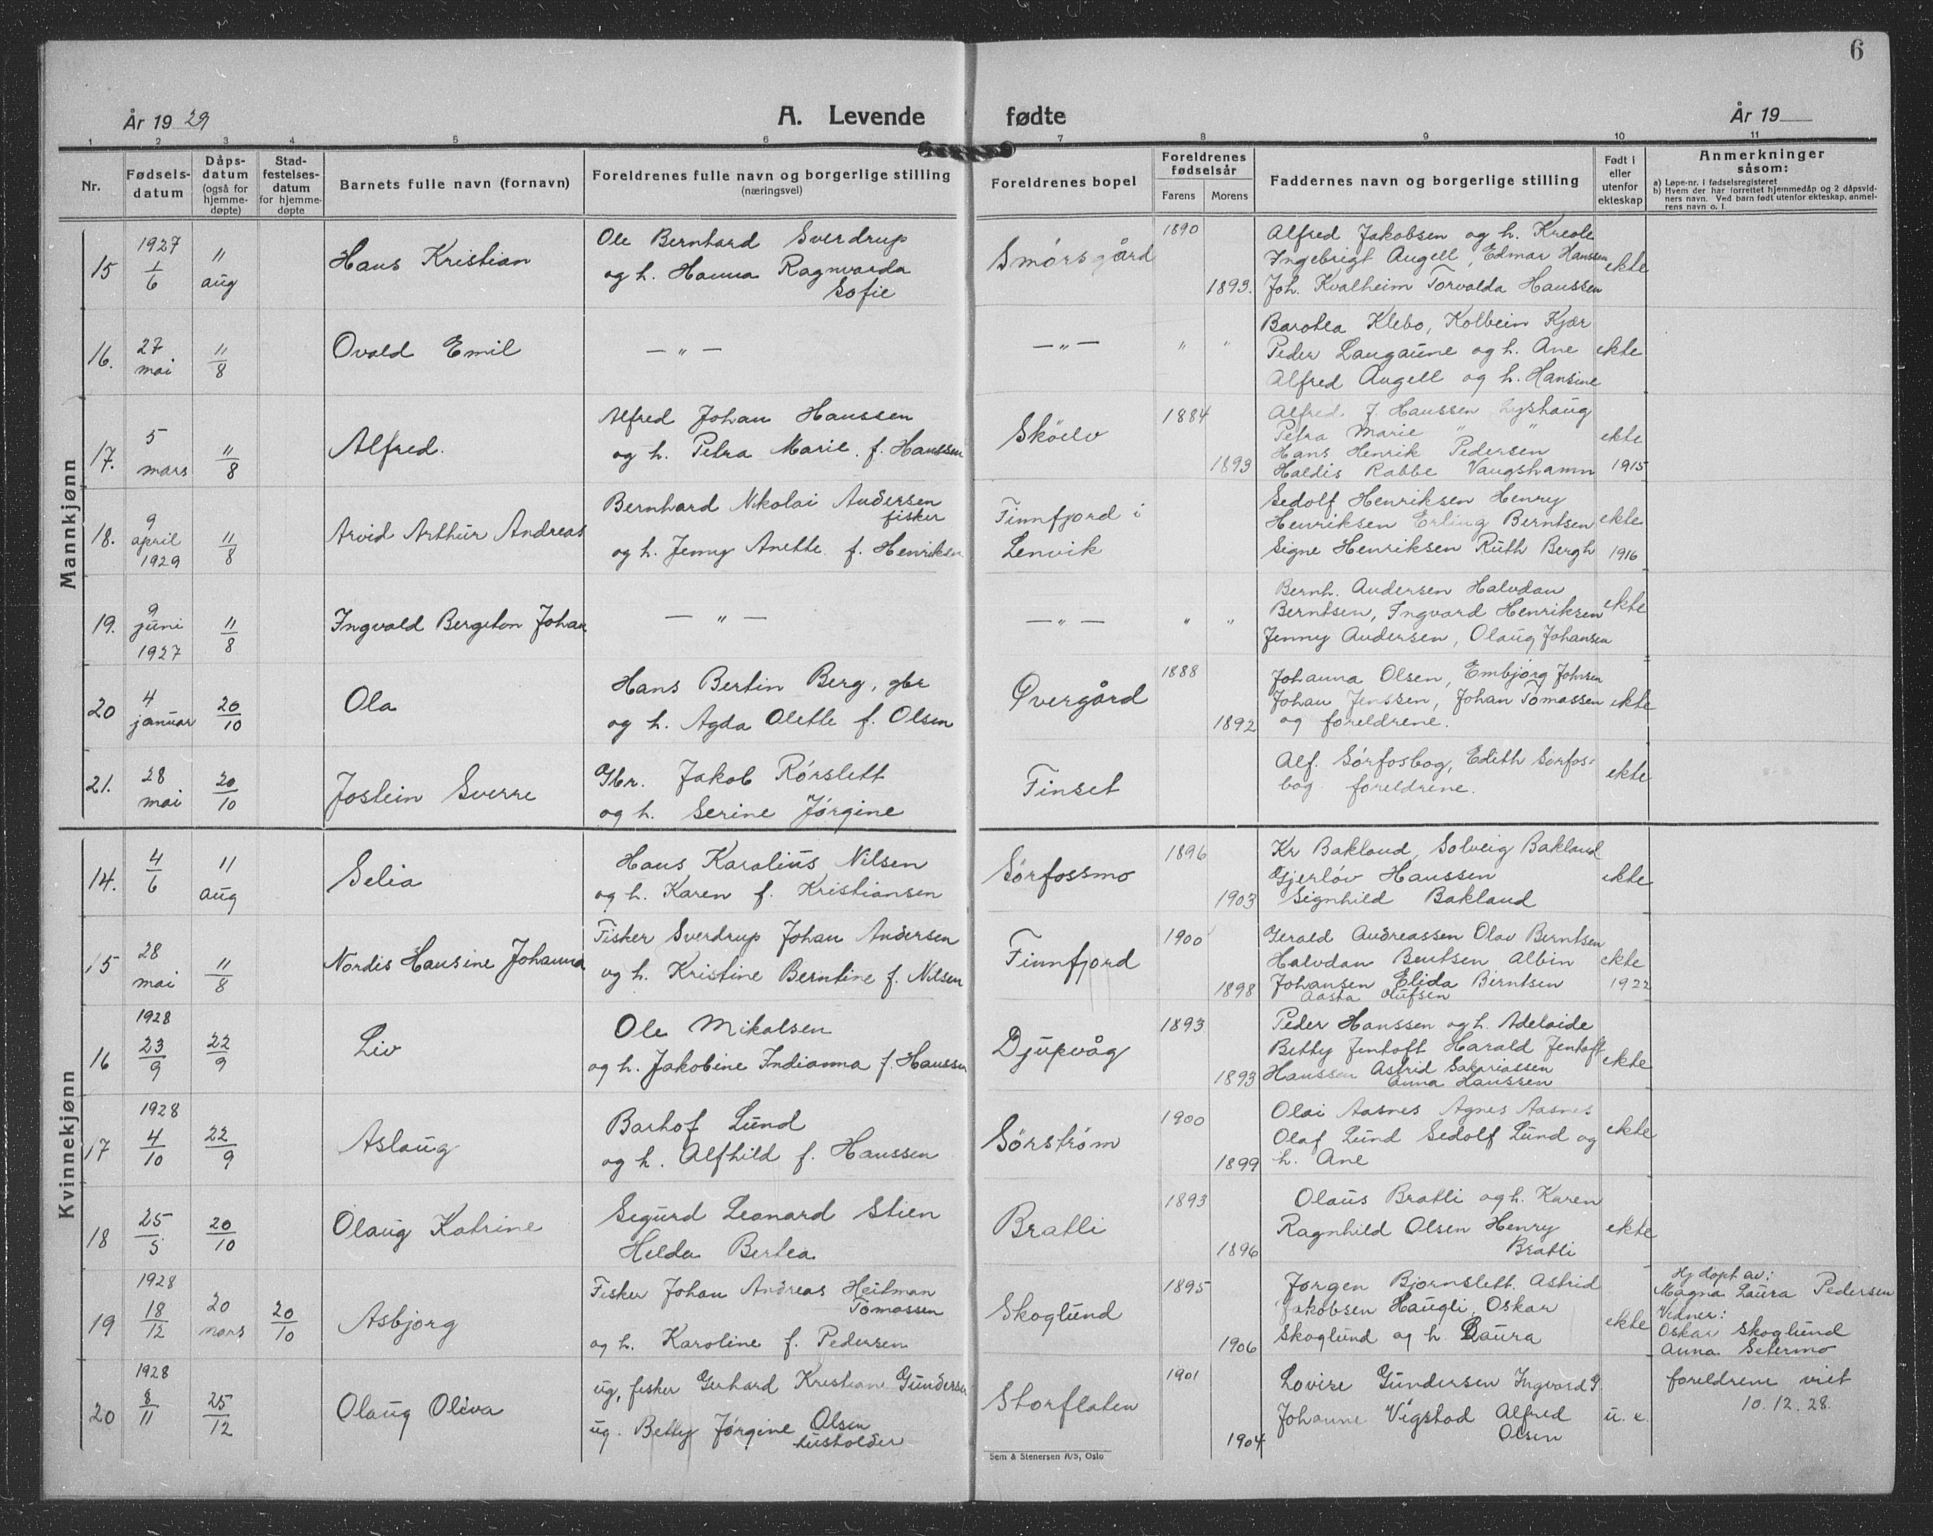 6
År 1929
A. Levende fødte
År 19
1 2 3 4 5 6 7 8 9 10 11
Nr.
Fødsels-
datum
Dåps-
datum
(også for
hjemme-
døpte)
Stad-
festelses-
datum
for hjemme-
døpte
Barnets fulle navn (fornavn)
Foreldrenes fulle navn og borgerlige stilling
(næringsvei)
Foreldrenes bopel
Foreldrenes
fødselsår
Farens Morens
Faddernes navn og borgerlige stilling
Født i
eller
utenfor
ekteskap
Anmerkninger
såsom:
a) Løpe-nr. i fødselsregisteret
b) Hvem der har forrettet hjemmedåp og 2 dåpsvid-
ners navn. Ved barn født utenfor ekteskap, anmel-
rens navn o. l.
Mannkjønn
15 1927 1/6 11 aug Hans Kristian
Ole Bernhard Sverdrup
og h. Hanna Ragnvarda
Sofie
Smørsgård 1890 1893.
Alfred Jakobsen og h. Kreole
Ingebrigt Angell, Edmar Hanssen
Joh. Kvalheim Torvalda Hanssen
ekte
16. 27 mai 11/8 Ovald Emil
— „ — — „ — „ „
Barotea Klebo, Kolbein Kjær
Peder Laugaune og h. Ane
Alfred Angell og h. Hansine
ekte
17. 5 mars 11/8 Alfred.
Alfred Johan Hanssen
og h. Petra Marie f. Hanssen
Sköelv 1884 1893
Alfred J. Hanssen Lyshaug
Petra Marie „ „
Hans Henrik Pedersen
Haldis Rabbe Vangshamn
ekte 1915
18. 9 april 1929 11/8 Arvid Arthur Andreas
Bernhard Nikolai Andersen
fisker
og h. Jenny Anette f. Henriksen
Finnfjord i
Lenvik
Sedolf Henriksen Henry
Henriksen Erling Berntsen
Signe Henriksen Ruth Bergh
ekte 1916
19. 9 juni 1927 11/8 Ingvald Bergiton Johan
— „ — — „ — „ „
Bernh. Andersen Halvdan
Berntsen, Ingvard Henriksen
Jenny Andersen, Olaug Johansen
ekte
20 4 januar 20/10 Ola
Hans Bertin Berg, gbr
og h. Agda Olette f. Olsen
Øvergård 1888 1892
Johanna Olsen, Embjørg Johnsen
Johan Jenssen, Johan Tomassen
og foreldrene.
ekte
21. 28 mai 20/10 Jostein Sverre
Gbr. Jakob Rørslett
og h. Serine Jørgine
Finset
Alf. Sørfosbog, Edith Sørfos-
bog foreldrene.
ekte
Kvinnekjønn
14. 4/6 11 aug Selia
Hans Karolius Nilsen
og h. Karen f. Kristiansen
Sørfossmo 1896 1903
Kr Bakland, Solveig Bakland
Gjerløv Hanssen
Signhild Bakland
ekte
15 28 mai 11/8 Nordis Hansine Johanna
Fisker Sverdrup Johan Andersen
og h. Kristine Berntine f. Nilsen
Finnfjord 1900 1898
Gerald Andreassen Olav Berntsen
Halvdan Bentsen Albin
Johansen Elida Berntsen
Aasta Olufsen
ekte 1922
16 1928 23/9 22/9 Liv
Ole Mikalsen
og h. Jakobine Indianna f. Hanssen
Djupvåg 1893 1893
Peder Hanssen og h. Adelaide
Betty Jentoft Harald Jentoft
Hanssen Astrid Sakariassen
Anna Hanssen
ekte
17 1928 4/10 22/9 Aslaug
Barhof Lund
og h. Alfhild f. Hanssen
Sørstrøm 1900 1899
Olai Aasnes Agnes Aasnes
Olaf Lund Sedolf Lund og
h. Ane
ekte
18 25/5 20/10 Olaug Katrine
Sigurd Leonard Stien
Helda Bertea
Bratli 1893 1896
Olaus Bratli og h. Karen
Ragnhild Olsen Henry
Bratli
ekte
19 1928 18/12 20 mars 20/10 Asbjørg
Fisker Johan Andreas Heitman
Tomassen
og h. Karoline f. Pedersen
Skoglund 1895 1906
Jørgen Bjørnslett Astrid
Jakobsen Haugli, Oskar
Skoglund og h. Laura
ekte
Hj døpt av:
Magna Laura Pedersen
Vidner:
Oskar Skoglund
Anna Setermo
20 1928 8/11 25/12 Olaug Oliva
ug. fisker Gerhard Kristian Gundersen
ug. Betty Jørgine Olsen
husholder
Storflaten 1901 1904
Lovise Gundersen Ingvard G.
Johanne Vigstad Alfred
Olsen
u. e.
foreldrene viet
10.12.28.
Sem & Stenersen A/S, Oslo